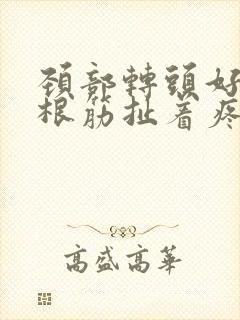 頚部轉頭好
根筋扯着疼
高盛高華